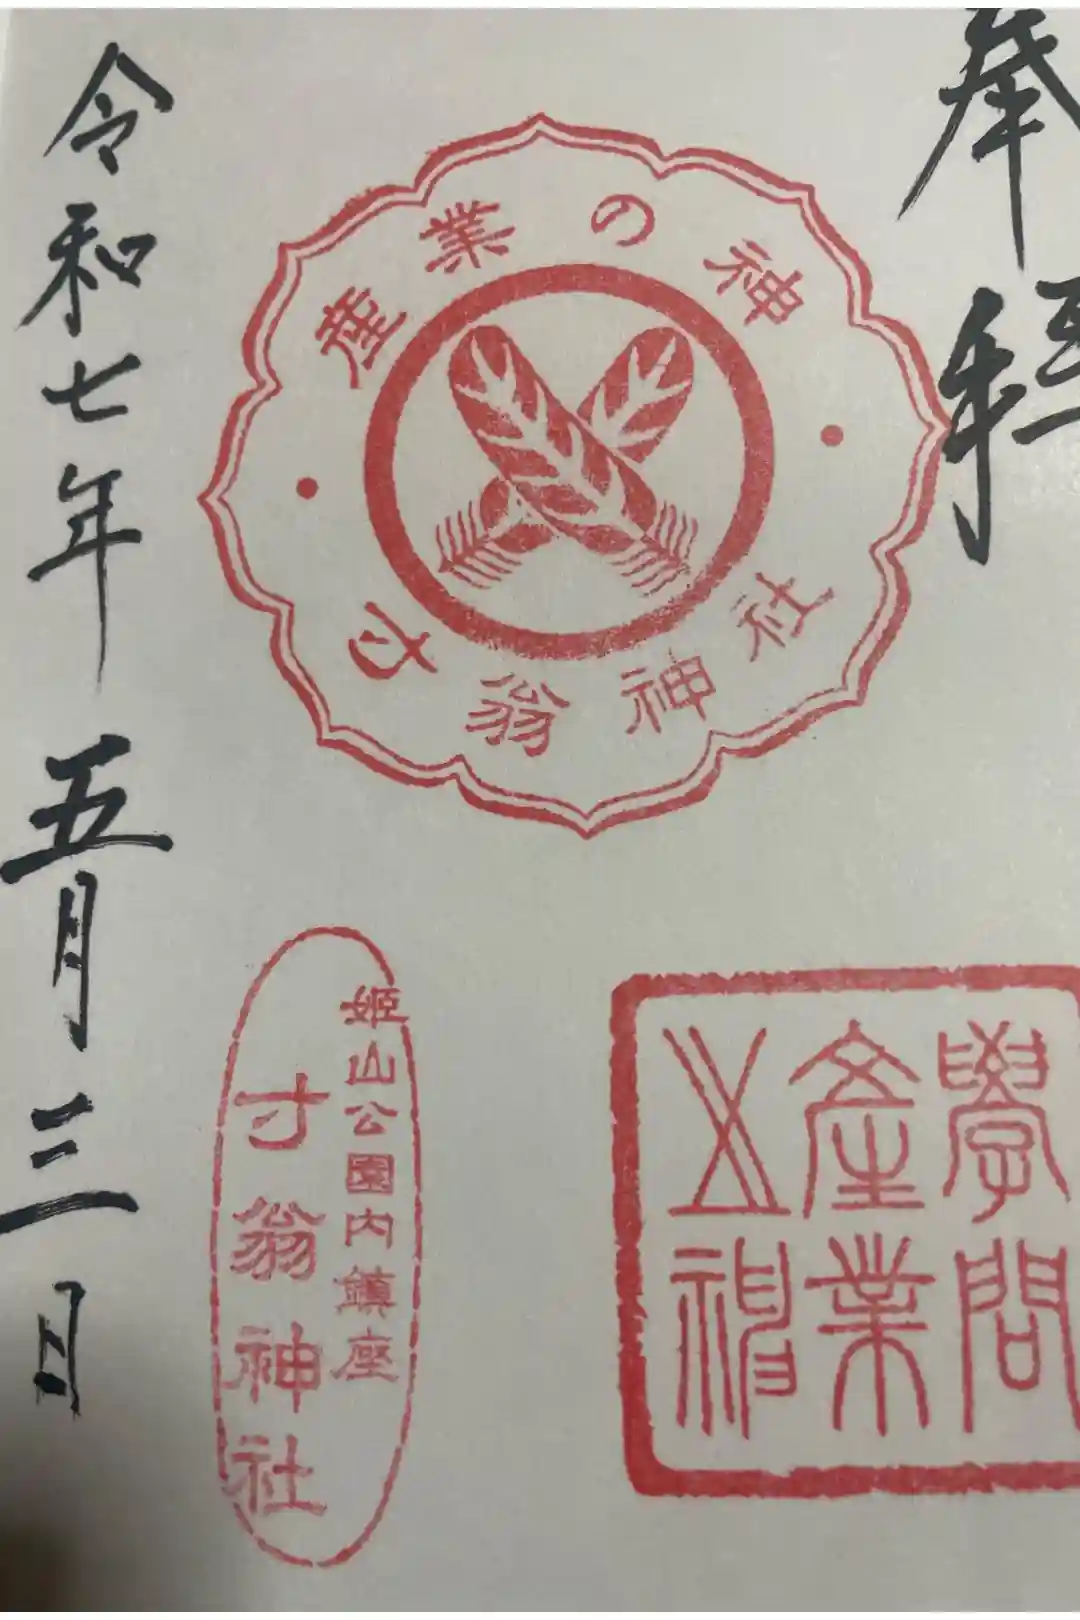 奉拝
産業の神
寸翁神社
學問
產業
之神
姫山公園内鎮座
寸翁神社
令和七年五月三日